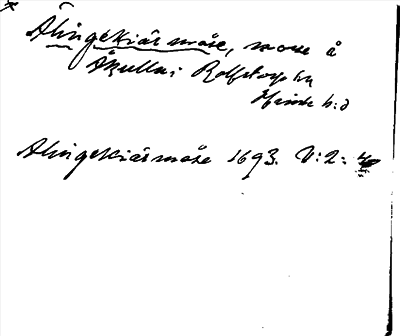 Älingekiärs måse, mosse å
Åkulla; Rolfstorp sn
Himle h:d
Alingekiärsmåse 1693. V:2: 4